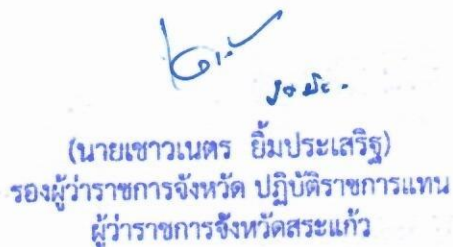 (นายเชาวเนตร ยิ้มประเสริฐ)
รองผู้ว่าราชการจังหวัด ปฏิบัติราชการแทน
ผู้ว่าราชการจังหวัดสระแก้ว